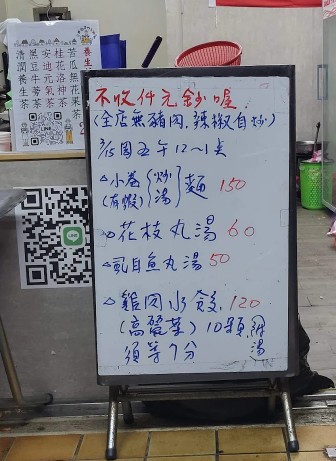 不收仟元鈔喔
(全店無豬肉.辣椒自炒)
3/15周五午12~1点
△小卷(有蝦){炒 湯}麵 150
△花枝丸湯 60
△虱目魚丸湯 50
△雞肉水餃.120
(高麗菜)10顆附湯
須等7分
養生
苦瓜無花果茶
桂花洛神茶
安迪元氣茶
黑豆牛蒡茶
清潤養生茶
LINE